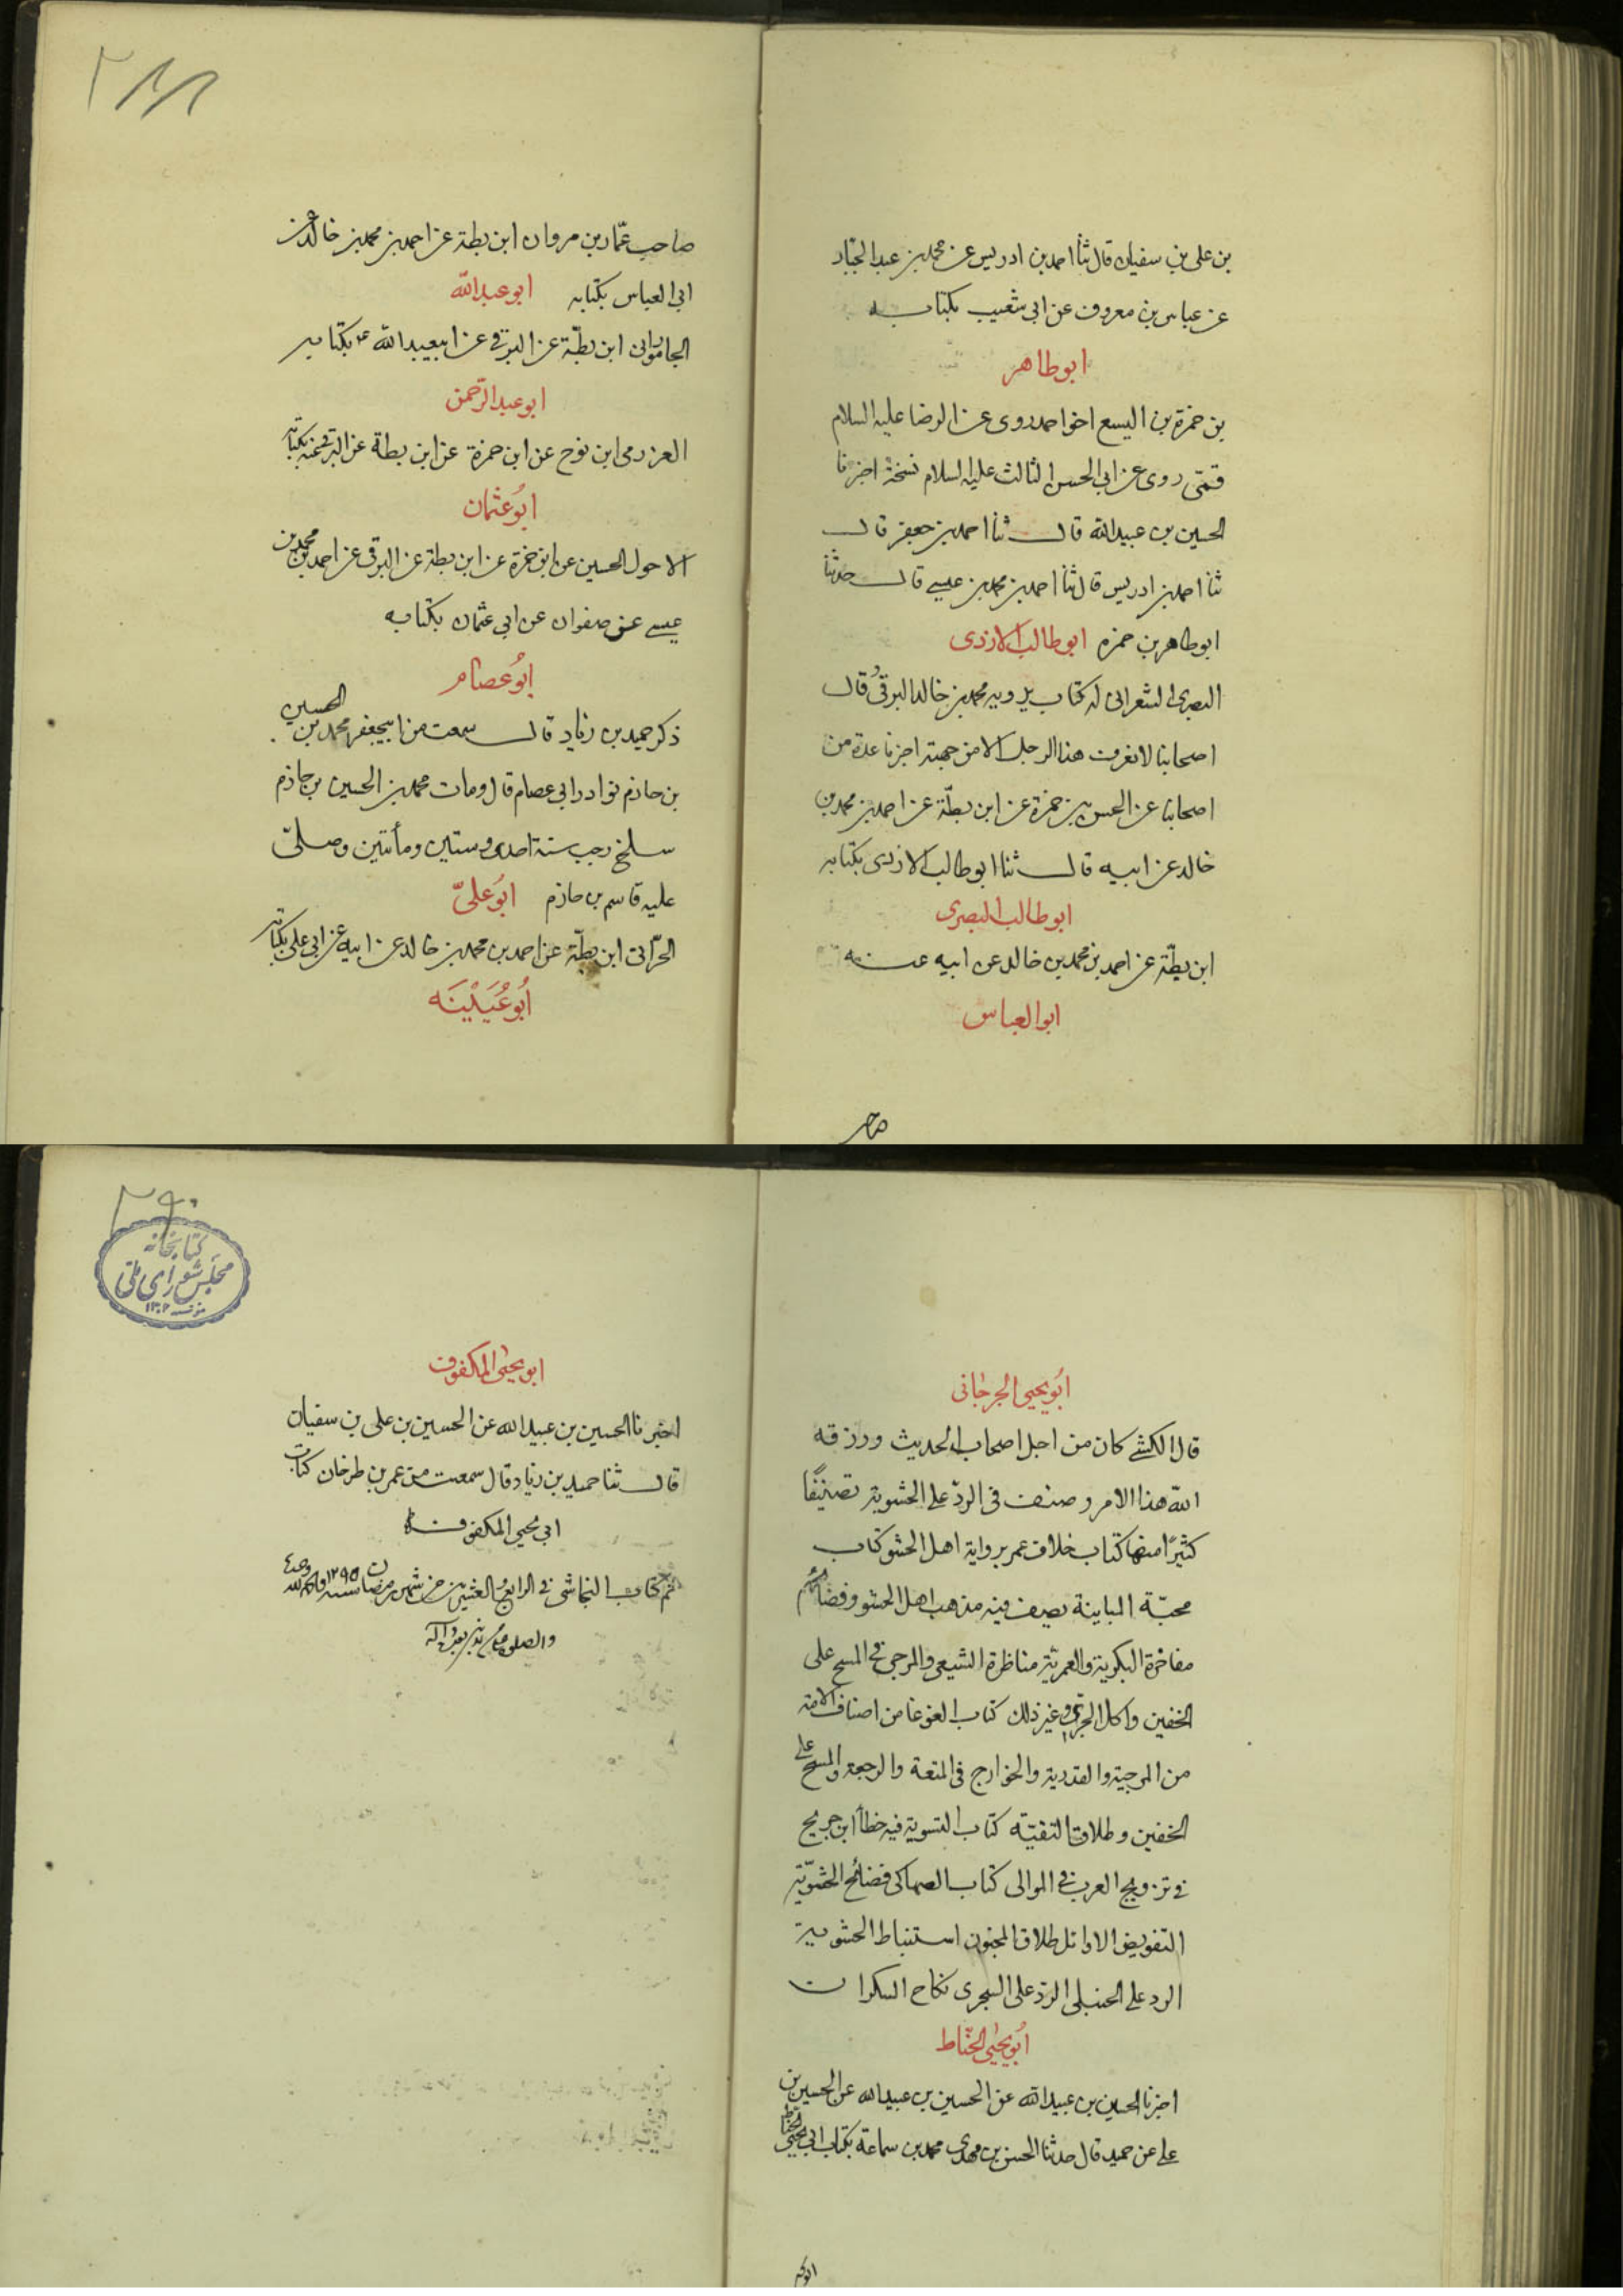 بن علی بن سفیان قال ثنا احمد بن ادریس عن محمد بن عبد الجبار
عن عباس بن معروف عن ابی شعیب بکتابه
ابوطاهر
بن حمزة بن الیسع اخو احمد روی عن الرضا علیه السلام
قمّی روی عن ابی الحسن الثالث علیه السلام نسخة اخبرنا
الحسین بن عبیدالله قال ثنا احمد بن جعفر قال
ثنا احمد بن ادریس قال ثنا احمد بن محمد بن عیسی قال حدثنا
ابوطاهر بن حمزه ابوطالب الازدی
البصری الشعرانی له کتاب یرویه محمد بن خالد البرقی قال
اصحابنا لا نعرف هذا الرجل الا من جهته اخبرنا عدة من
اصحابنا عن الحسن بن حمزة عن ابن بطّة عن احمد بن محمد بن
خالد عن ابیه قال ثنا ابوطالب الازدی بکتابه
ابوطالب البصری
ابن بطّة عن احمد بن محمد بن خالد عن ابیه عنه
ابوالعباس
صاحب
۲۸۸
صاحب عمّار بن مروان ابن بطة عن احمد بن محمد بن خالد عن
ابی العباس بکتابه ابوعبدالله
الجامورانی ابن بطّة عن البرقی عن ابیعبدالله بکتابه
ابوعبدالرّحمن
العرزمی ابن نوح عن ابن حمزة عن ابن بطة عن البرقی عنه بکتابه
ابُوعثمان
الاحول الحسین عن ابن حمزة عن ابن بطة عن البرقی عن احمد بن محمد بن
عیسی عن صفوان عن ابی عثمان بکتابه
ابُوعصام
ذکر حمید بن زیاد قال سمعت من ابیجعفر محمد بن الحسین
بن حازم نوادر ابی عصام قال ومات محمد بن الحسین بن حازم
سلخ رجب سنة احدی وستین ومأتین وصلّی
علیه قاسم بن حازم ابُوعلیّ
الحرّانی ابن بطّة عن احمد بن محمد بن خالد عن ابیه عن ابی علی بکتابه
اَبُوعُیَیْنَه
ابُویحیی الجرجانی
قال الکشی کان من اجل اصحاب الحدیث ورزقه
الله هذا الامر وصنف فی الردّ علی الحشویة تصنیفًا
کثیرًا منها کتاب خلاف عمر بروایة اهل الحشو کتاب
محبّة الباینة یصف فیه مذهب اهل الحشو وفضائحهم
مفاخرة البکریة والعمریة مناظرة الشیعی والمرجی فی المسح علی
الخفین واکل الجرّی وغیر ذلک کتاب الغوغا من اصناف الامة
من المرجیة والقدریة والخوارج فی المتعة والرجعة والمسح علی
الخفین وطلاق التقیّة کتاب التسویة فیه خطأ ابن جریح
فی تزویج العرب فی الموالی کتاب الصهاکی فضائح الحشویّة
التفویض الاوائل طلاق المجنون استنباط الحشویة
الرد علی الحنبلی الردّ علی السجزی نکاح السکران
ابُویحیی الحنّاط
اخبرنا الحسین بن عبیدالله عن الحسین بن عبیدالله عن الحسین بن
علی عن حمید قال حدثنا الحسن بن محمد بن سماعة بکتاب ابی یحیی الحناط
ابوکه
۲۹۰
کتابخانه
مجلس شورای ملی
۱۳۰۲
ابویحیی المکفوف
اخبرنا الحسین بن عبیدالله عن الحسین بن علی بن سفیان
قال ثنا حمید بن زیاد قال سمعت من عمر بن طرخان کتاب
ابی یحیی المکفوف
تم کتاب النجاشی فی الرابع والعشرین من شهر رمضان سنه ۱۲۹۵ والحمد لله وحده